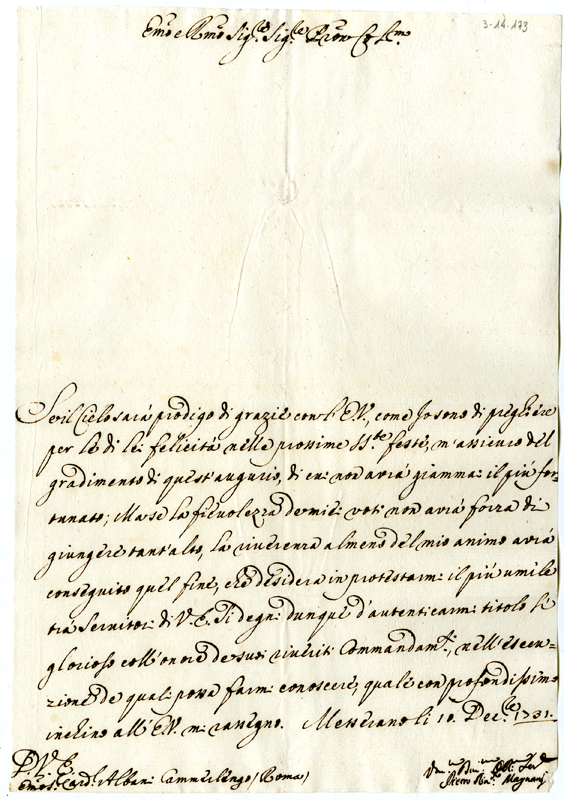 3-14-173
Emo e Rmo Sig.re Sig.re Pron Col.mo
Se il Cielo sarà prodigo di grazie con l'E.V., come Io sono di preghiere
per le di lei felicità nelle prossime SS.te feste, m'assicuro del
gradimento di quest'augurio, di cui non avrà giammai il più for-
tunato; Ma se la fievolezza de miei voti non avrà forza di
giungere tant'alto, la riverenza almeno del mio animo avrà
conseguito quel fine, che desidera in protestarmi il più umile
trà Servitori di V.E. Si degni dunque d'autenticarmi titolo sì
glorioso coll'onore de suoi riveriti Commandam.ti, nell'esecu=
zione de quali possa farmi conoscere, quale con profondissimo
inchino all'E.V. mi rassegno. Messerano li 10. Dec.re 1731.
D.V.E.
Emo S.r Card.l Albani Cammerlengo (Roma)
Um.mo Servo
Magnani